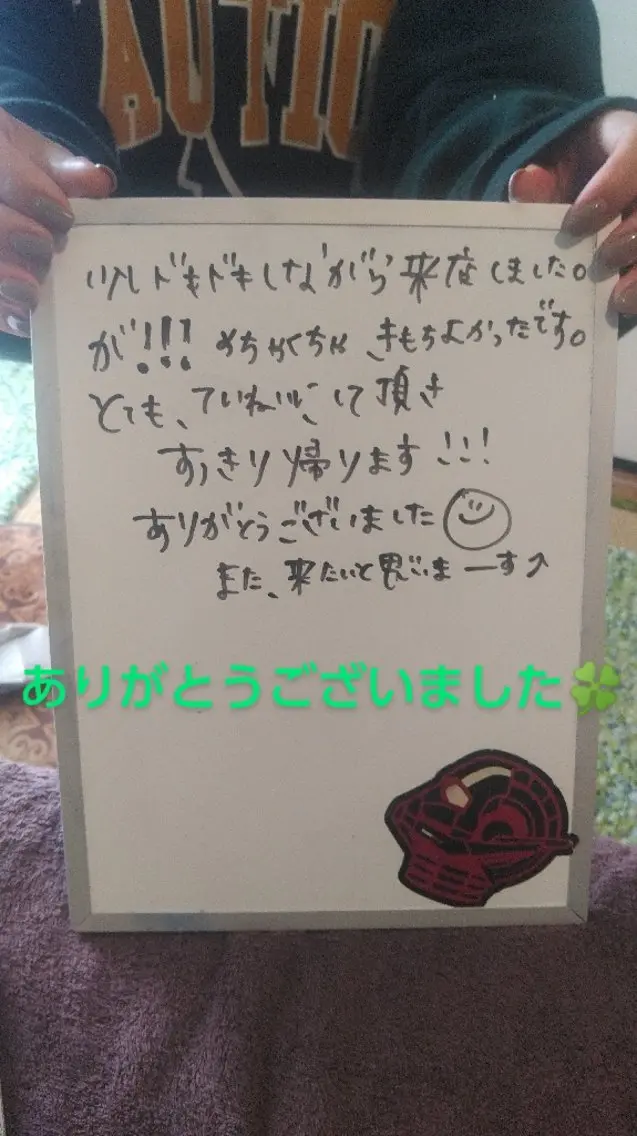 AUTIO
少しドキドキしながら来店しました。
が!!! めちゃくちゃ きもちよかったです。
とても、ていねいにして頂き
すっきり帰ります!!!
ありがとうございました
また、来たいと思いまーす↗
ありがとうございました🍀